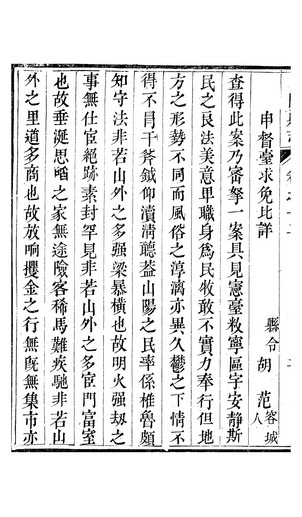 申督臺求免比詳
縣令胡范容城人
查得此案乃審拏一案具見憲臺敉寧區宇安靜斯
民之良法美意甲職身爲民牧敢不實力奉行但地
方之形勢不同而風俗之淳漓亦異久鬱之下情不
得不冐干斧鉞仰瀆淸聽葢山陽之民率係椎魯頗
知守法非若山外之多强梁暴橫也故明火强刼之
事無仕宦絕跡素封罕見非若山外之多宦門富室
也故垂涎思啗之家無途險客稀馬難疾馳非若山
外之里道多商也故放响攫金之行無旣無集市亦